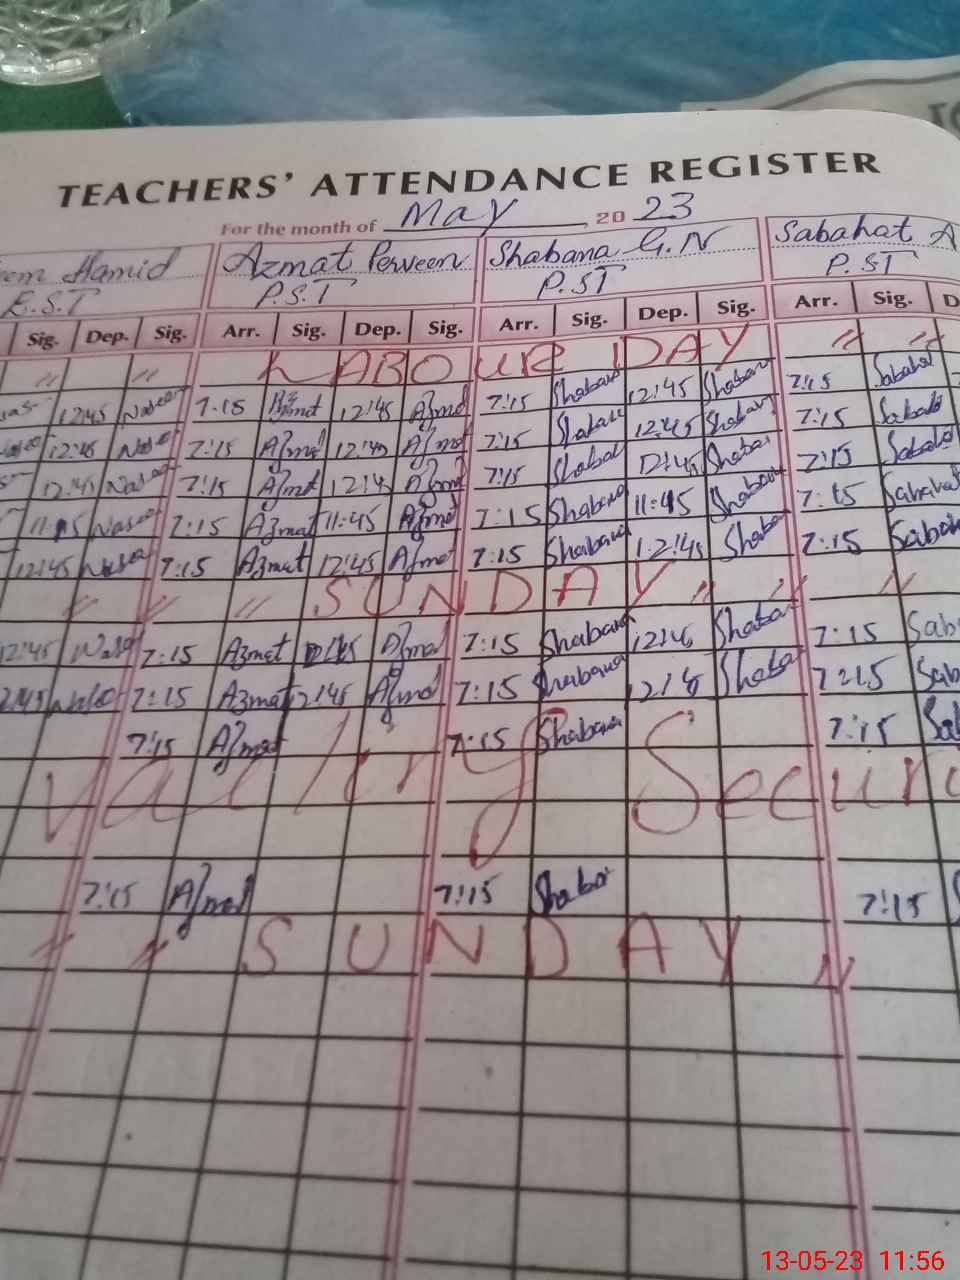 TEACHERS' ATTENDANCE REGISTER
For the month of May 2023
Hamid Azmat Perveen Shabana G.N Sabahat A
E.S.T P.S.T P.ST P.ST
Sig. Dep. Sig. Arr. Sig. Dep. Sig. Arr. Sig. Dep. Sig. Arr. Sig. D
" " LABOUR DAY " "
12:45 Naseer 7:15 Azmat 12:45 Azmat 7:15 Shabana 12:45 Shabana 7:15 Sabahat
12:45 7:15 Azmat 12:45 Azmat 7:15 Shabana 12:45 Shabana 7:15 Sabahat
12:45 7:15 Azmat 12:45 Azmat 7:15 Shabana 12:45 Shabana 7:15 Sabahat
11:15 Naseer 7:15 Azmat 11:45 Azmat 7:15 Shabana 11:45 Shabana 7:15 Sabahat
12:45 7:15 Azmat 12:45 Azmat 7:15 Shabana 12:45 Shaba 7:15 Sabah
" " " SUNDAY " " "
12:45 7:15 Azmat 12:45 Azmat 7:15 Shabana Shaba 7:15 Sab
12:45 7:15 Azmat 12:45 Azmat 7:15 Shabana Shaba 7:15 Sab
7:15 Azmat 7:15 Shabana 7:15 Sab
Secur
7:15 Azmat 7:15 Shaba 7:15 S
" " SUNDAY "
13-05-23 11:56